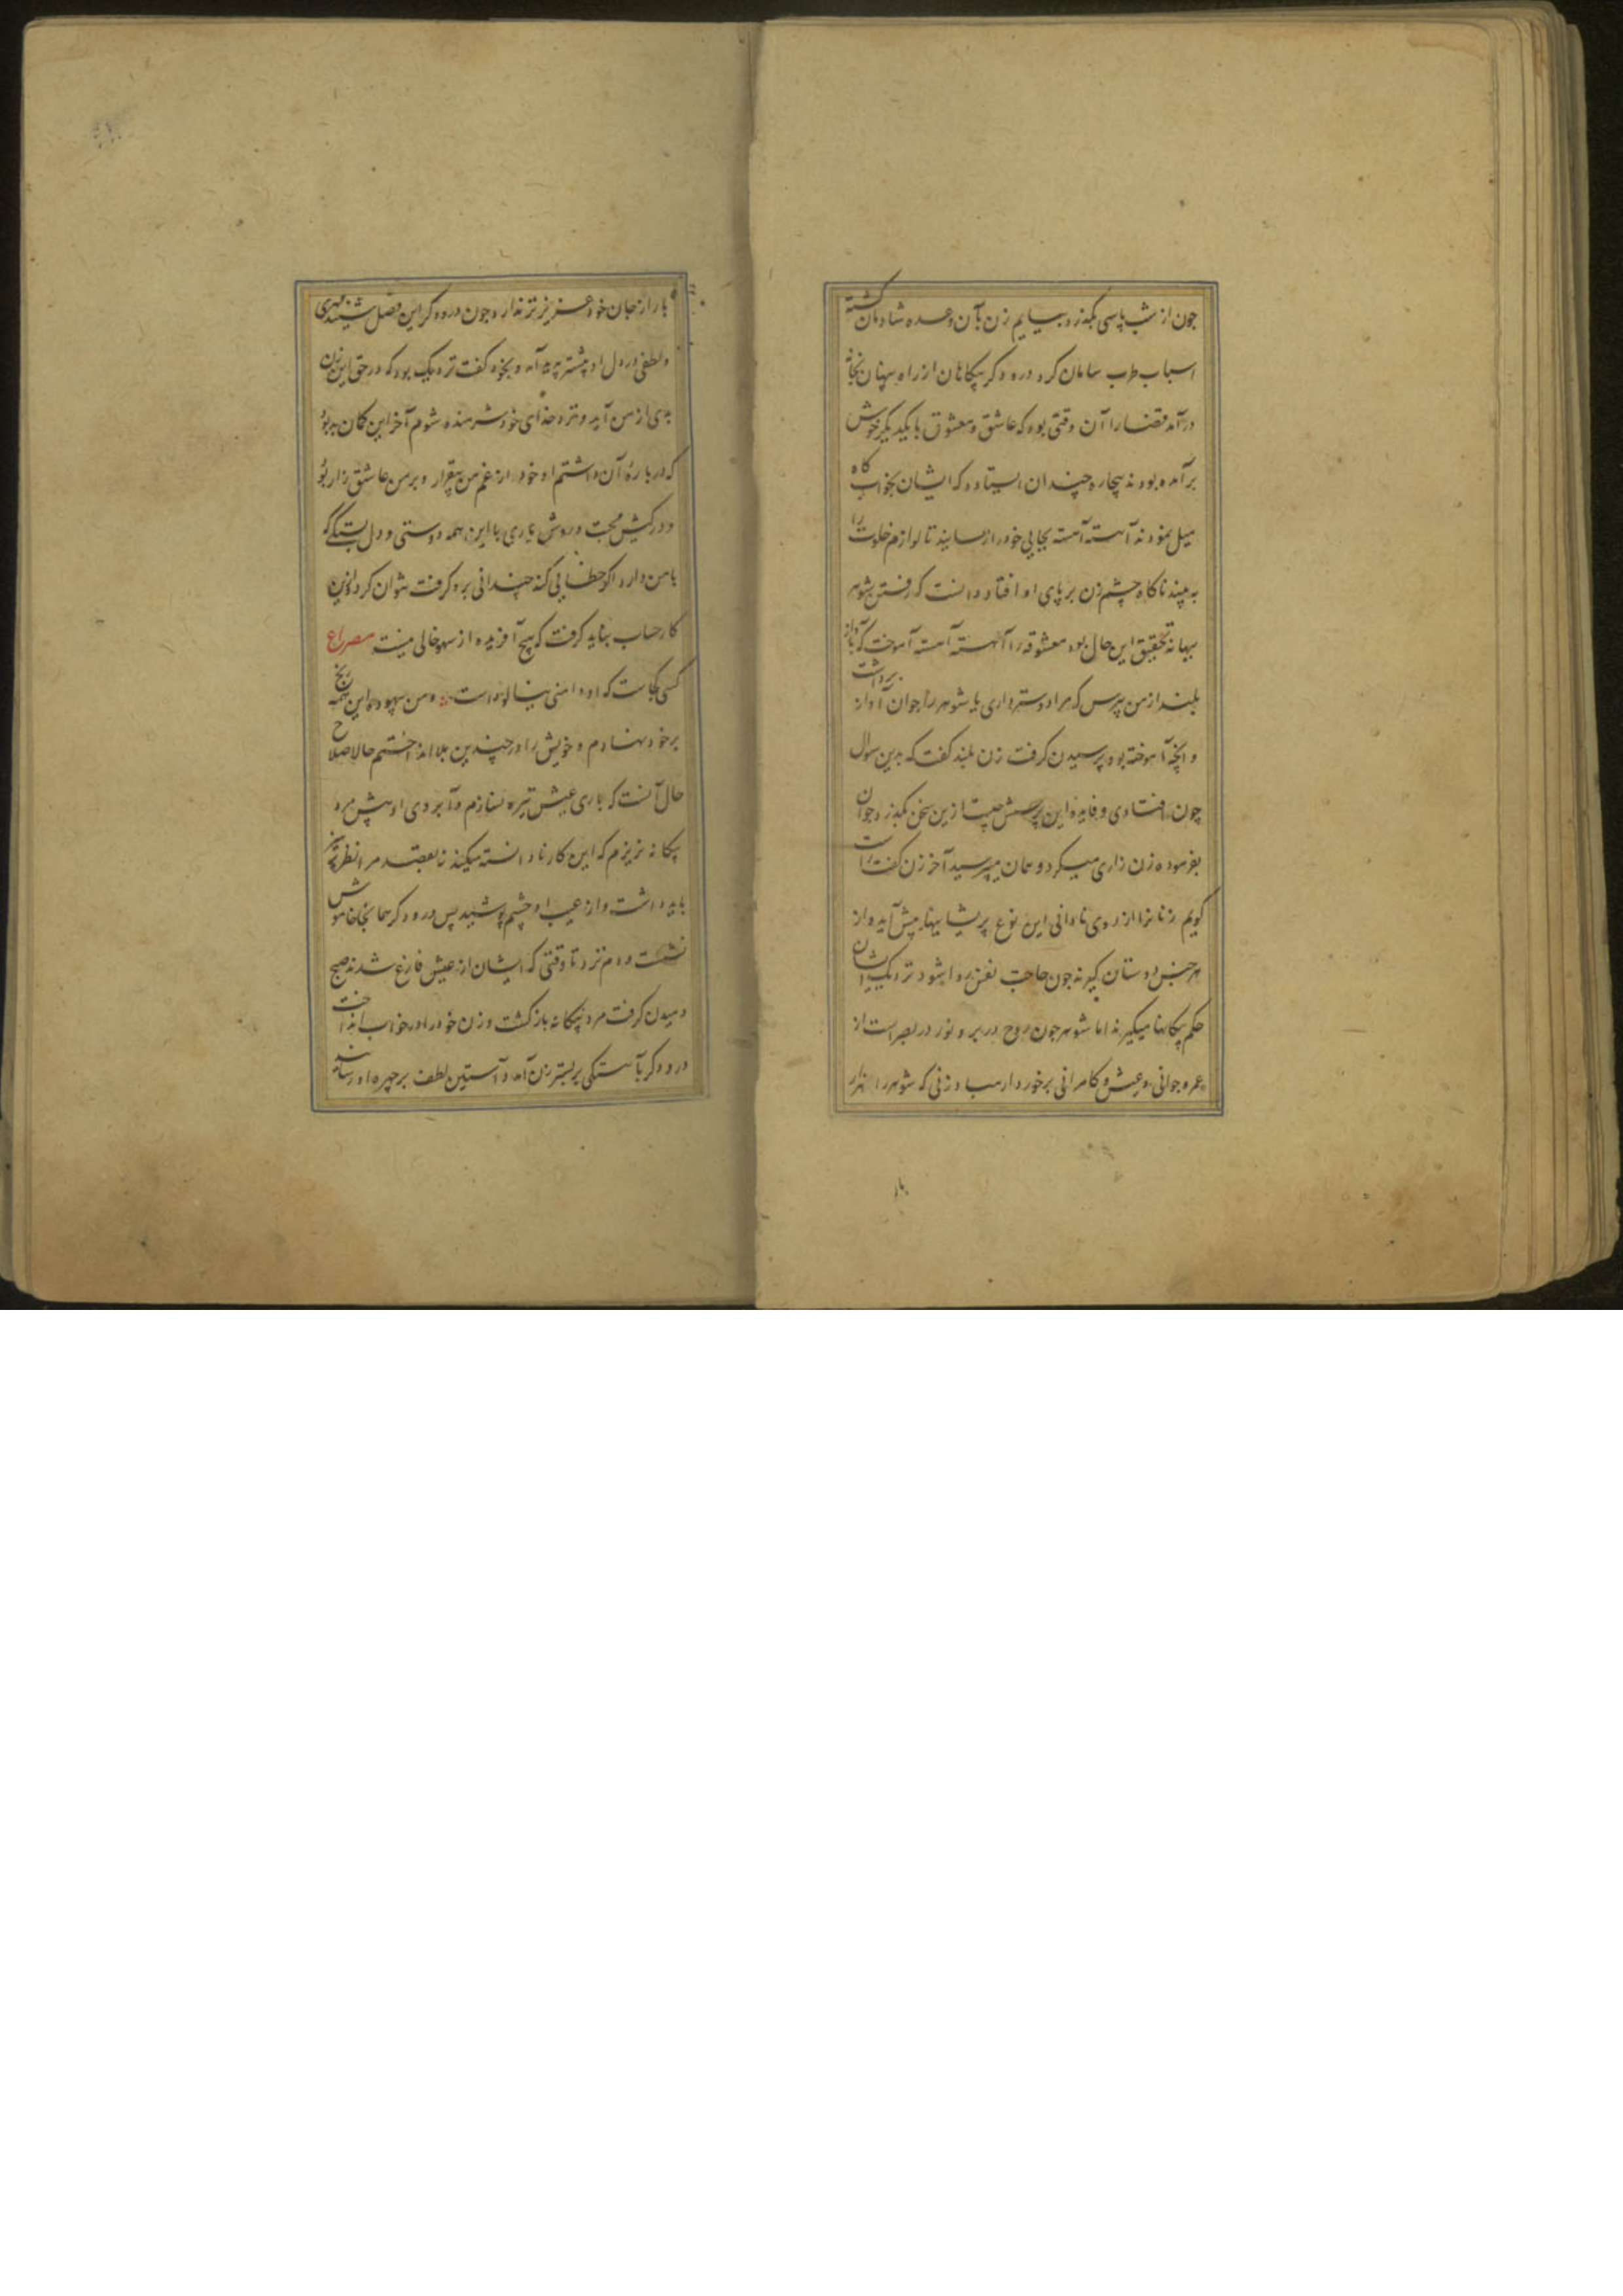 چون از شب پاسی بگذرد بیایم زن بآن وعده شادمان گشته
اسباب طرب سامان کرد درودگر بیکاهان از راه پنهان بخانه
درآمد قضا را آن وقتی بود که عاشق و معشوق با یکدیگر خوش
برآمده بودند بیچاره چندان ایستاد که ایشان بخواب گاه
میل نمودند آهسته آهسته بجایی خود را رسانید تا لوازم خلوت را
به بیند ناگاه چشم زن بر پای او افتاد دانست که رفتن شوهر
بهانه تحقیق این حال بود معشوقه را آهسته آهسته آموخت که بآواز
بلند از من پرس که مرا دوستر داری یا شوهر را جوان آواز برداشت
و آنچه آموخته بود پرسیدن گرفت زن بلند گفت که بدین سوال
چون افتادی و فایده این پرسش چیست ازین سخن بگذر و جوان
بفرموده زن زاری میکرد و همان میپرسید آخر زن گفت راست
گویم زنانرا از روی نادانی این نوع پریشانیها پیش آید و از
هر جنس دوستان گیرند چون حاجت نفس روا شود نزدیک ایشان
حکم بیگانها میگیرند اما شوهر چون روح در بر و نور در بصر است از
عمر و جوانی و عیش و کامرانی برخوردار مباد زنی که شوهر را هزار
بار
بار از جان خود عزیزتر ندارد چون درودگر این فصل شنید مهری
و لطفی در دل او پیشتر پدید آمد و بخود گفت نزدیک بود که در حق این زن
بدی از من آید و نزد خدای خود شرمنده شوم آخر این گمان بد بود
که در باره آن داشتم او خود از غم من بیقرار و بر من عاشق زار بود
و در کیش محبت و روش یاری با این همه دوستی و دل بستگی که
با من دارد اگر خطایی کند چندانی برو گرفت نتوان کرد و ازین
کار حساب نباید گرفت که هیچ آفریده از سهو خالی نیست مصراع
کسی کجاست که او دامنی نیالوده است و من بیهوده این همه رنج
بر خود نهادم و خویش را در چندین بلا انداختم حالا صلاح
حال آنست که باری عیش تیره نسازم و آبروی او پیش مرد
بیگانه نریزم که این کار نادانسته میکند نه بقصد مرا نظر بهتر
باید داشت و از عیب او چشم پوشید پس درودگر همانجا خاموش
نشست و دم نزد تا وقتی که ایشان از عیش فارغ شدند صبح
دمیدن گرفت مرد بیگانه بازگشت و زن خود را در خواب انداخت
درودگر بآهستگی بر بستر زن آمد و آستین لطف بر چهره او رسانید